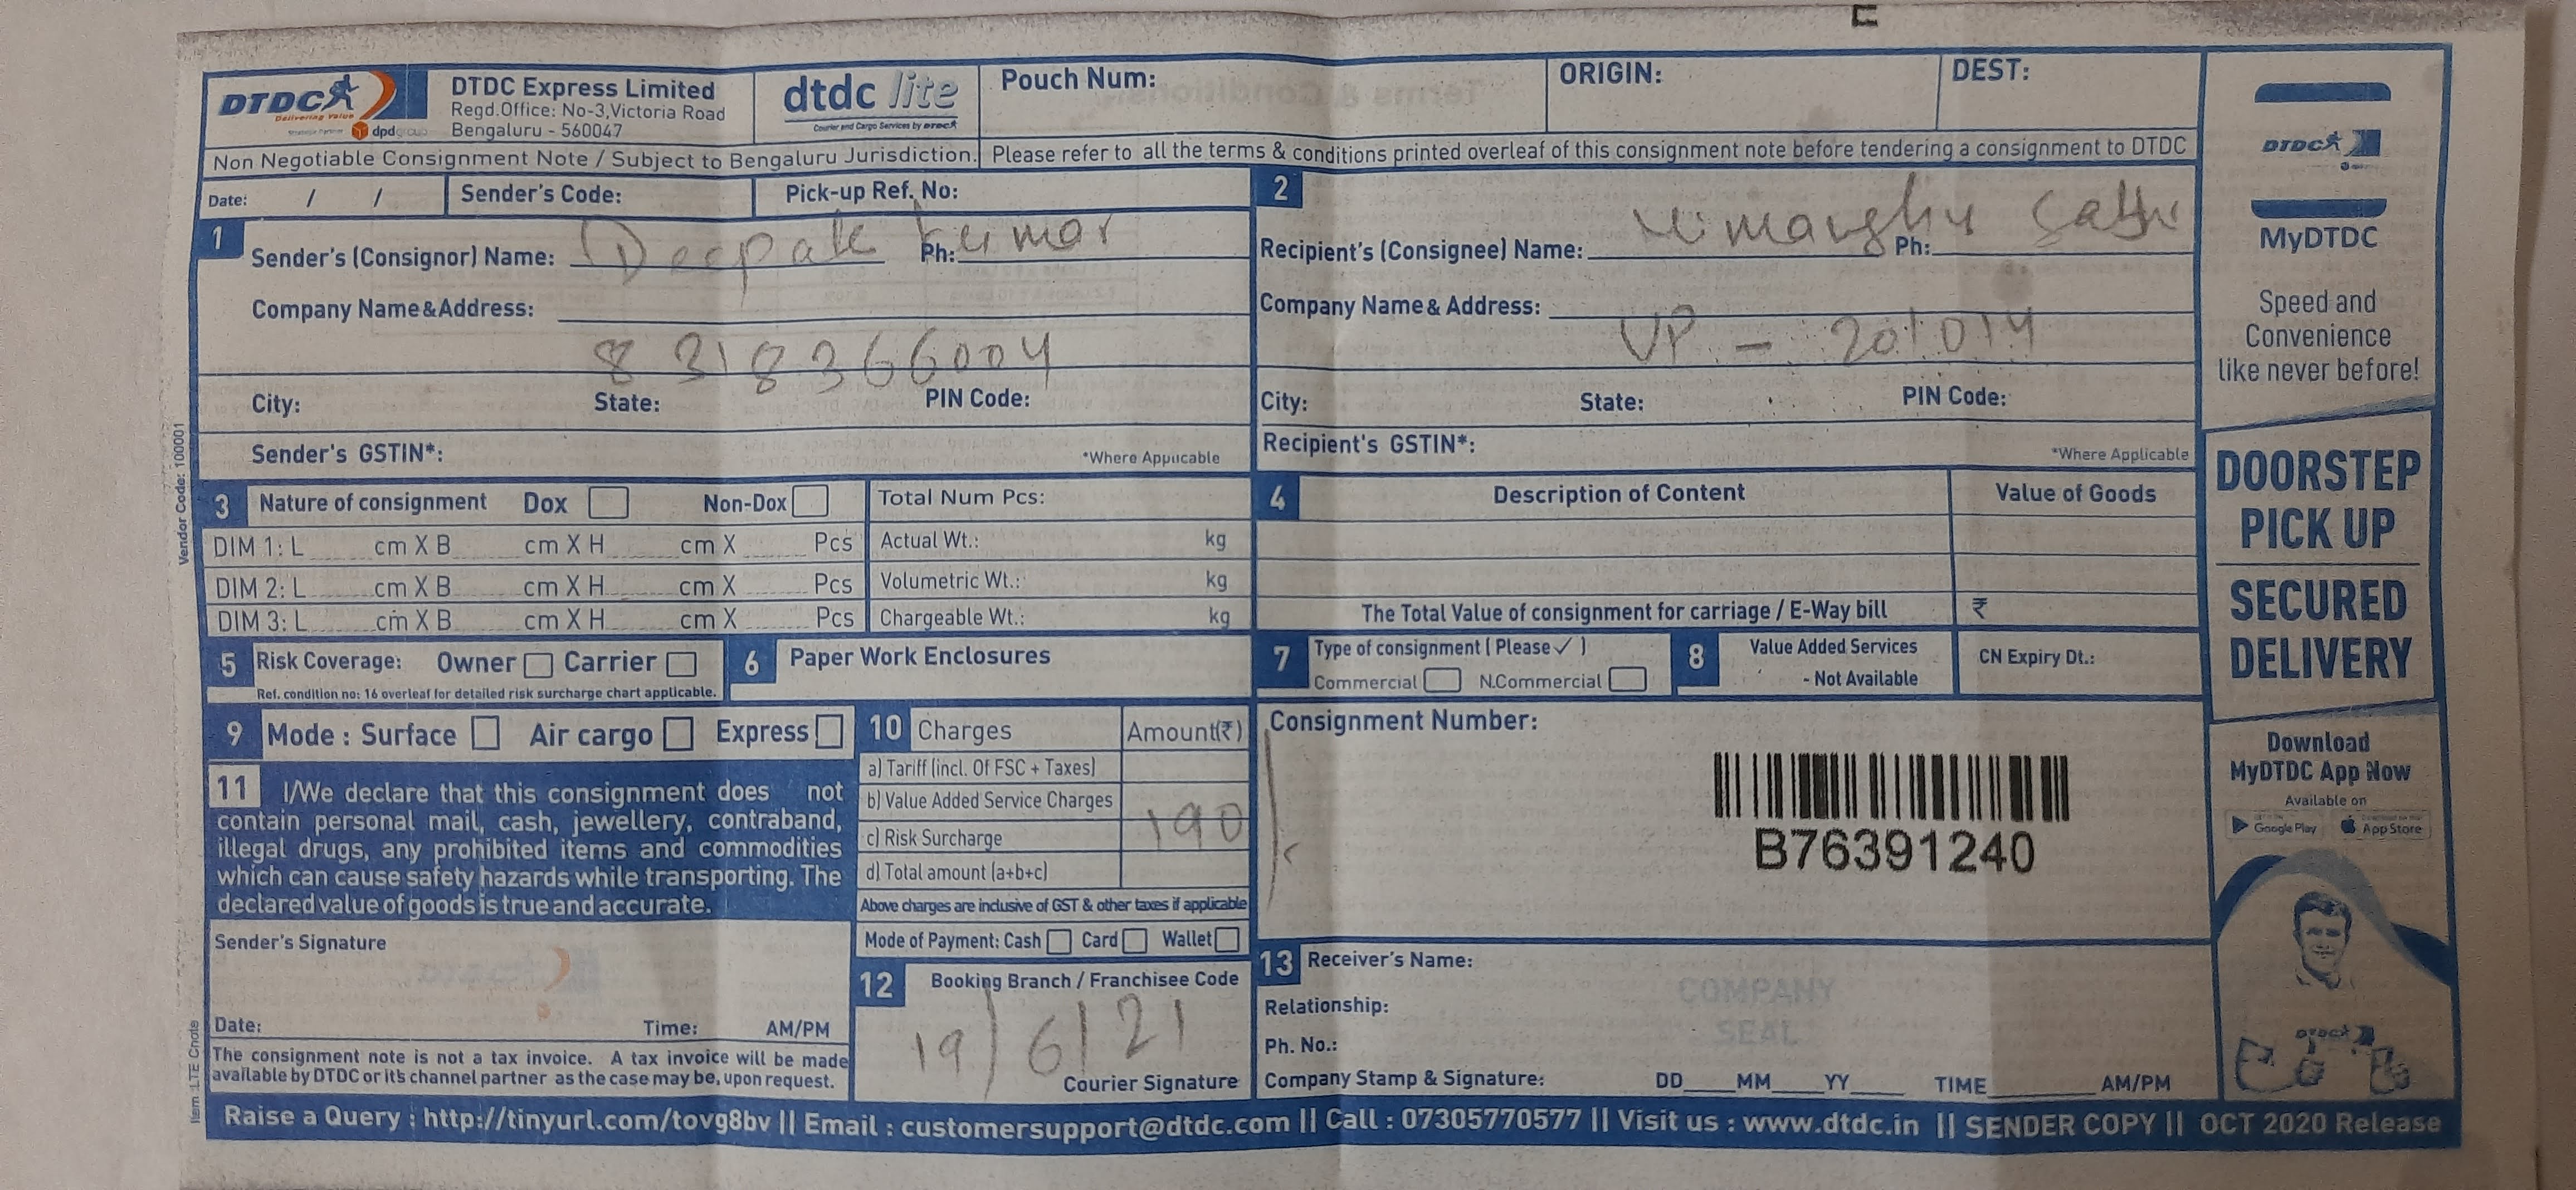 DTDC
Delivering Value
dpdgroup
DTDC Express Limited
Regd.Office: No-3,Victoria Road
Bengaluru - 560047
dtdc lite
Courier and Cargo Services by DTDC
Pouch Num:
ORIGIN:
DEST:
Non Negotiable Consignment Note / Subject to Bengaluru Jurisdiction.
Please refer to all the terms & conditions printed overleaf of this consignment note before tendering a consignment to DTDC
Date: / /
Sender's Code:
Pick-up Ref. No:
1
Sender's (Consignor) Name: Deepak Kumar Ph:
Company Name&Address:
8318366004
City: State: PIN Code:
Sender's GSTIN*:
*Where Applicable
2
Recipient's (Consignee) Name: Himanshu Ph:
Company Name & Address:
UP - 201014
City: State: PIN Code:
Recipient's GSTIN*:
*Where Applicable
3 Nature of consignment Dox Non-Dox
DIM 1: L cm X B cm X H cm X Pcs
DIM 2: L cm X B cm X H cm X Pcs
DIM 3: L cm X B cm X H cm X Pcs
Total Num Pcs:
Actual Wt.: kg
Volumetric Wt.: kg
Chargeable Wt.: kg
4 Description of Content Value of Goods
The Total Value of consignment for carriage / E-Way bill ₹
5 Risk Coverage: Owner Carrier
Ref. condition no: 16 overleaf for detailed risk surcharge chart applicable.
6 Paper Work Enclosures
7 Type of consignment ( Please ✓ )
Commercial N.Commercial
8 Value Added Services
- Not Available
CN Expiry Dt.:
9 Mode : Surface Air cargo Express
10 Charges Amount(₹)
a) Tariff (incl. Of FSC + Taxes)
b) Value Added Service Charges
c) Risk Surcharge
190
d) Total amount (a+b+c)
Above charges are inclusive of GST & other taxes if applicable
Mode of Payment: Cash Card Wallet
11 I/We declare that this consignment does not
contain personal mail, cash, jewellery, contraband,
illegal drugs, any prohibited items and commodities
which can cause safety hazards while transporting. The
declared value of goods is true and accurate.
Sender's Signature
Date: Time: AM/PM
The consignment note is not a tax invoice. A tax invoice will be made
available by DTDC or it's channel partner as the case may be, upon request.
12 Booking Branch / Franchisee Code
19/6/21
Courier Signature
Consignment Number:
B76391240
13 Receiver's Name:
Relationship:
Ph. No.:
COMPANY
SEAL
Company Stamp & Signature: DD MM YY TIME AM/PM
DTDC
MyDTDC
Speed and
Convenience
like never before!
DOORSTEP
PICK UP
SECURED
DELIVERY
Download
MyDTDC App Now
Available on
Google Play
App Store
DTDC
Vendor Code: 100001
Item :LTE Cnote
Raise a Query : http://tinyurl.com/tovg8bv || Email : customersupport@dtdc.com || Call : 07305770577 || Visit us : www.dtdc.in || SENDER COPY || OCT 2020 Release